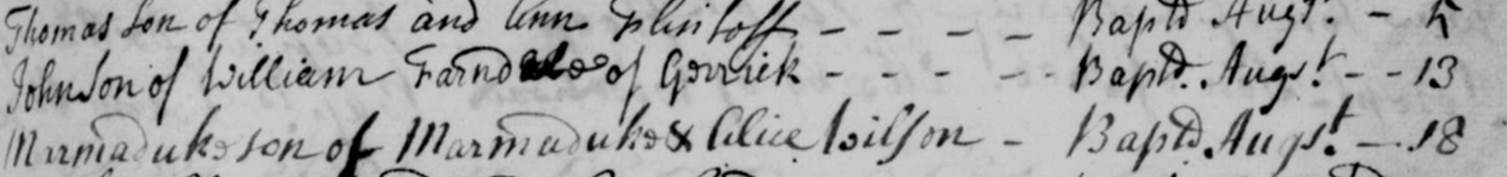 Thomas Son of Thomas and Ann Flintoff - - - - Baptd Augst. - 5
John Son of William Farndale of Gerrick - - - - - Baptd. Augst - - 13
Marmaduke son of Marmaduke & Alice Wilson - Baptd. Augst. - 18